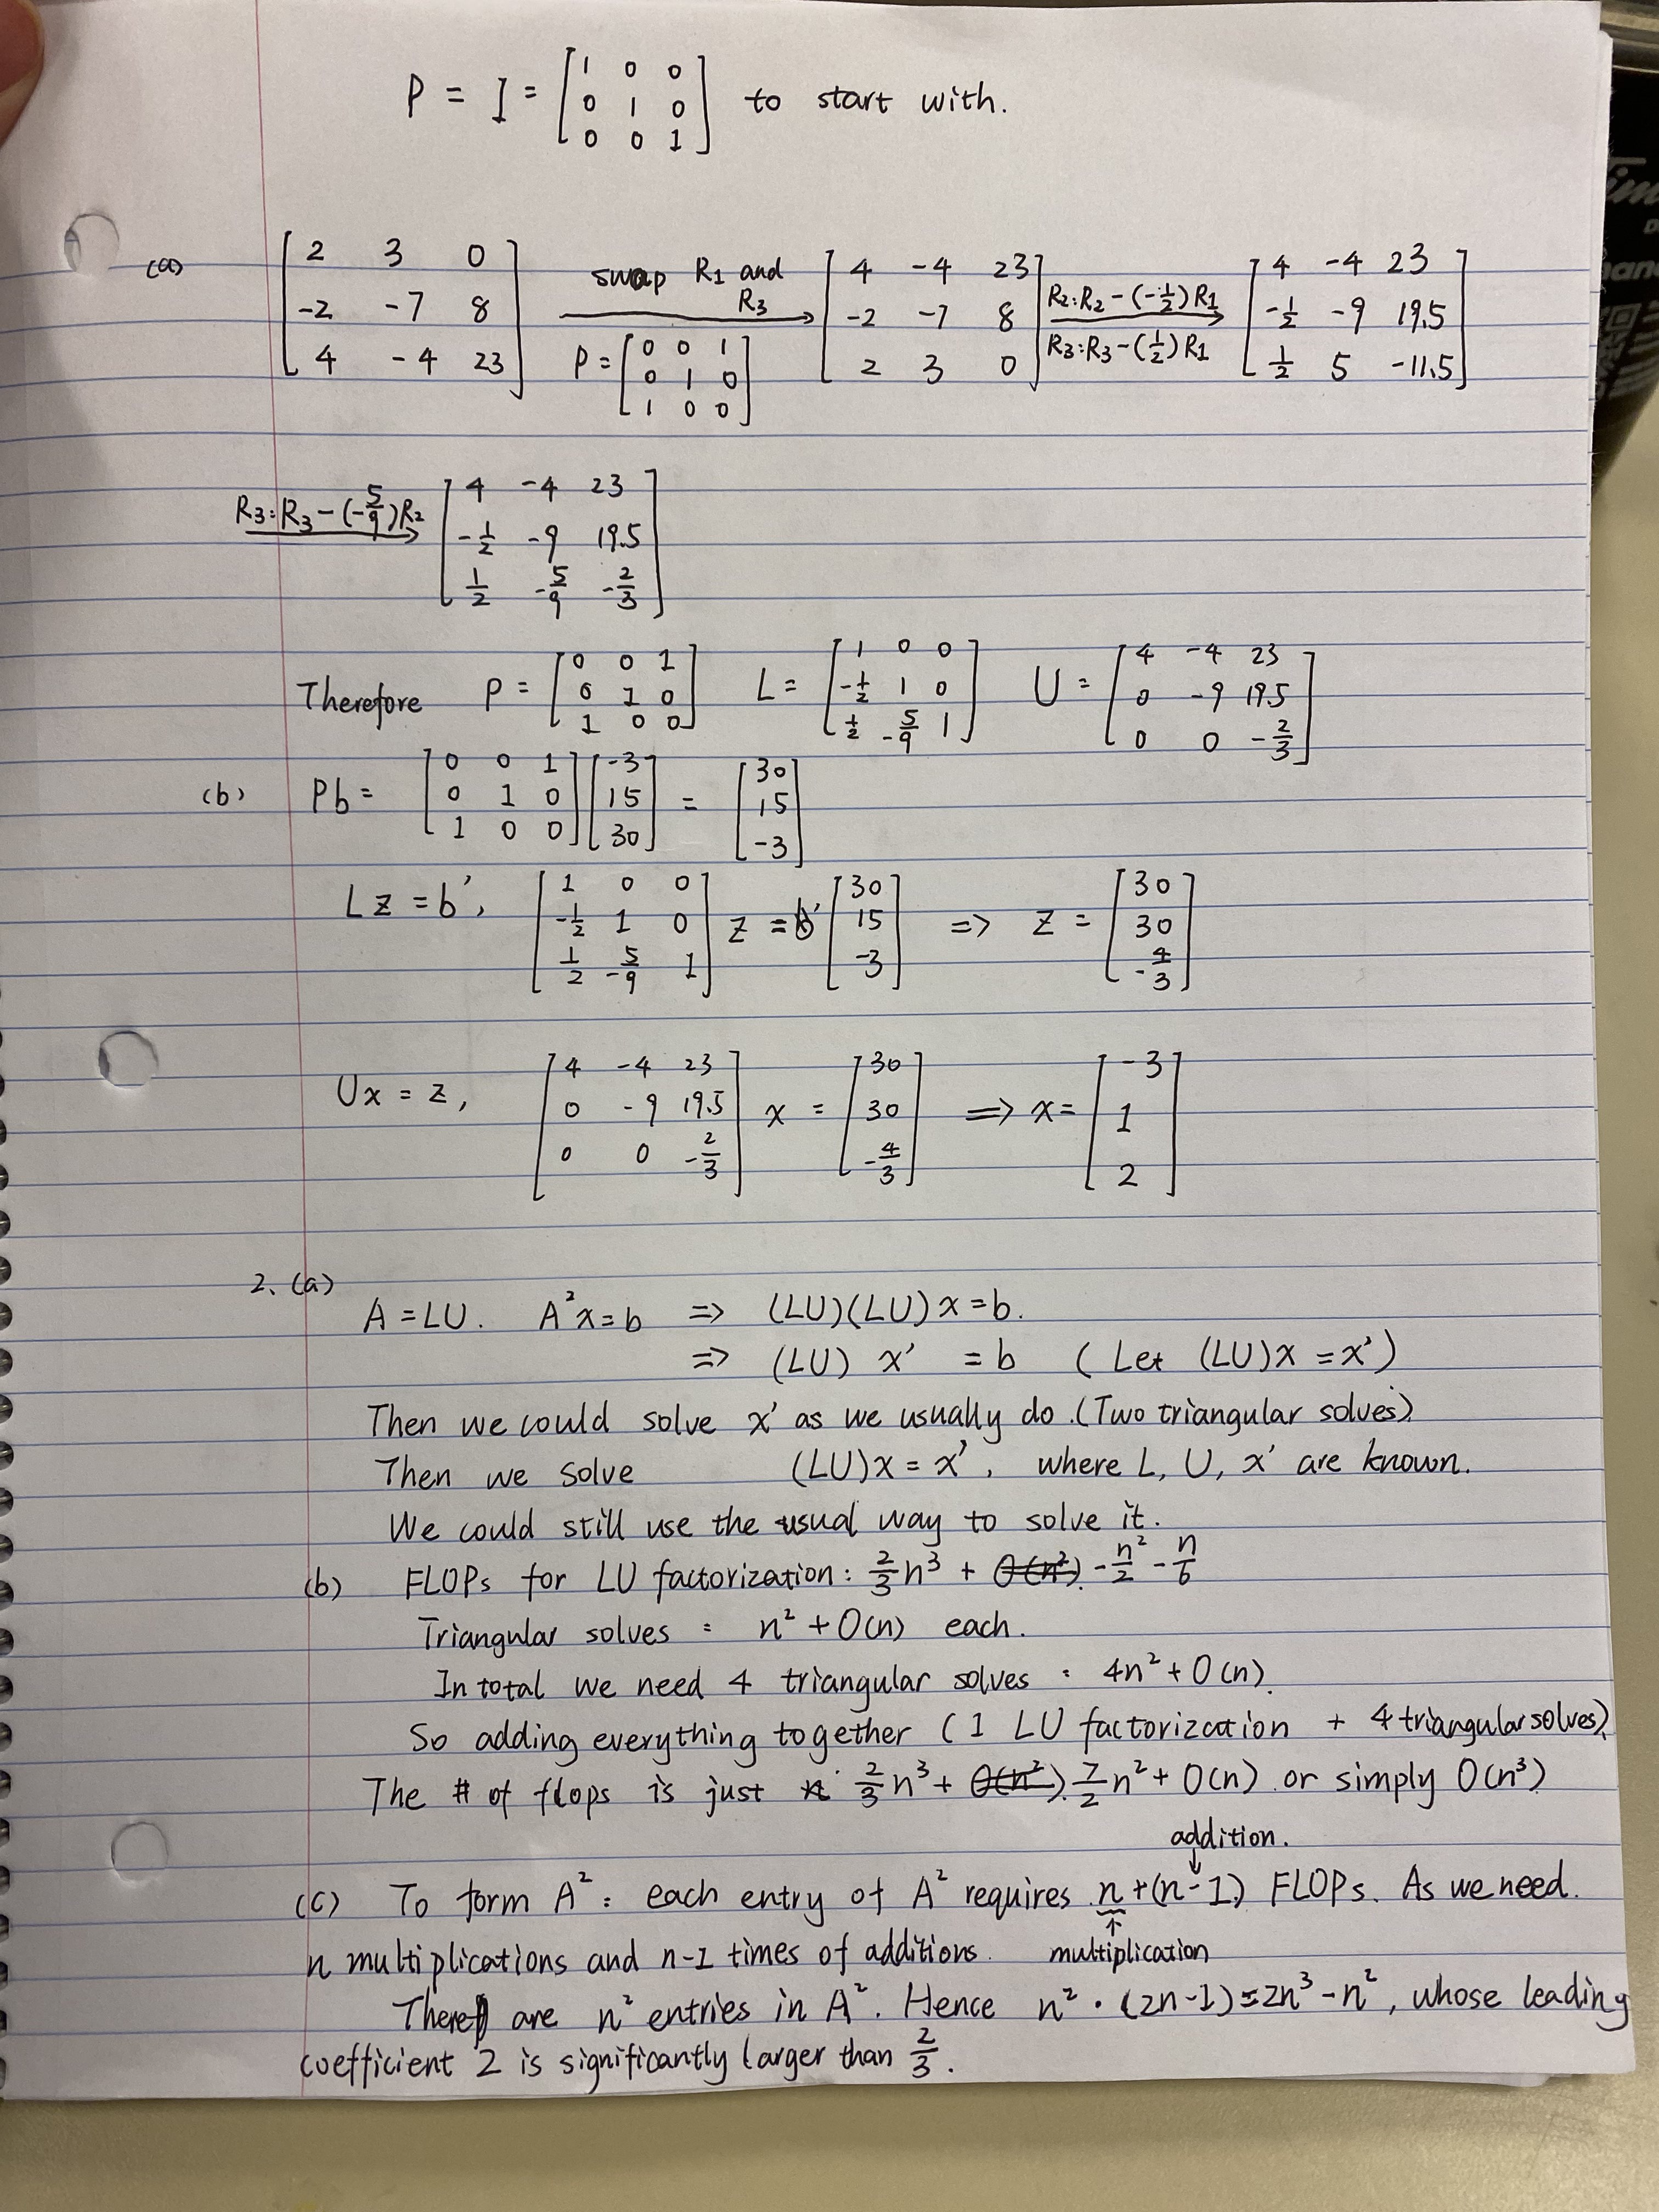 P = I = [1 0 0; 0 1 0; 0 0 1] to start with.
(a) [2 3 0; -2 -7 8; 4 -4 23] swap R1 and R3 → P = [0 0 1; 0 1 0; 1 0 0] [4 -4 23; -2 -7 8; 2 3 0] R2:R2-(-1/2)R1 → R3:R3-(1/2)R1 [4 -4 23; -1/2 -9 19.5; 1/2 5 -11.5]
R3:R3-(-5/9)R2 → [4 -4 23; -1/2 -9 19.5; 1/2 -5/9 -2/3]
Therefore P = [0 0 1; 0 1 0; 1 0 0] L = [1 0 0; -1/2 1 0; 1/2 -5/9 1] U = [4 -4 23; 0 -9 19.5; 0 0 -2/3]
(b) Pb = [0 0 1; 0 1 0; 1 0 0] [-3; 15; 30] = [30; 15; -3]
Lz = b', [1 0 0; -1/2 1 0; 1/2 -5/9 1] z = b' [30; 15; -3] => z = [30; 30; -4/3]
Ux = z, [4 -4 23; 0 -9 19.5; 0 0 -2/3] x = [30; 30; -4/3] => x = [-3; 1; 2]
2. (a)
A = LU. A²x = b => (LU)(LU)x = b.
=> (LU) x' = b (Let (LU)x = x')
Then we could solve x' as we usually do. (Two triangular solves).
Then we solve (LU)x = x', where L, U, x' are known.
We could still use the usual way to solve it.
(b) FLOPs for LU factorization: 2/3 n³ + O(n²) - n²/2 - n/6
Triangular solves : n² + O(n) each.
In total we need 4 triangular solves : 4n² + O(n).
So adding everything together (1 LU factorization + 4 triangular solves).
The # of flops is just 2/3 n³ + O(n²) 7/2 n² + O(n) or simply O(n³)
addition.
(c) To form A²: each entry of A² requires n + (n-1) FLOPs. As we need
n multiplications and n-1 times of additions. multiplication
There are n² entries in A². Hence n² · (2n-1) = 2n³ - n², whose leading
coefficient 2 is significantly larger than 2/3.